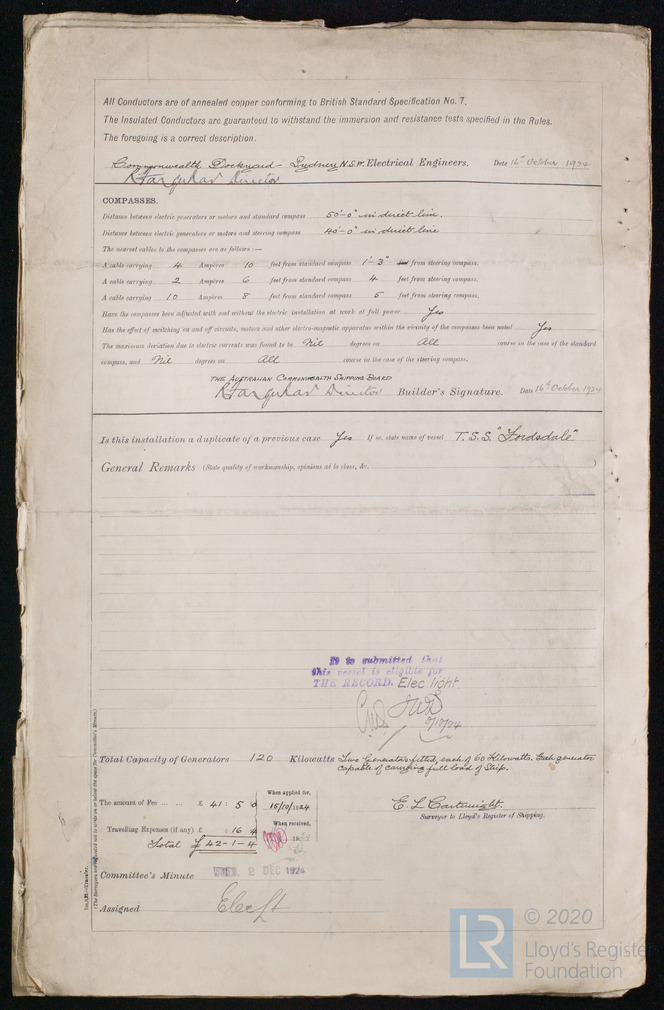 All Conductors are of annealed copper conforming to British Standard Specification No. 7.
The Insulated Conductors are guaranteed to withstand the immersion and resistance tests specified in the Rules.
The foregoing is a correct description.
Commonwealth Dockyard - Sydney N.S.W. Electrical Engineers. Date 16th October 1924
R Farquhar Director
COMPASSES.
Distance between electric generators or motors and standard compass 50'-0" in direct line.
Distance between electric generators or motors and steering compass 40'-0" in direct line
The nearest cables to the compasses are as follows:—
A cable carrying 4 Ampères 10 feet from standard compass 1'-3" feet from steering compass.
A cable carrying 2 Ampères 6 feet from standard compass 4 feet from steering compass.
A cable carrying 10 Ampères 8 feet from standard compass 5 feet from steering compass.
Have the compasses been adjusted with and without the electric installation at work at full power Yes
Has the effect of switching on and off circuits, motors and other electro-magnetic apparatus within the vicinity of the compasses been noted Yes
The maximum deviation due to electric currents was found to be Nil degrees on All course in the case of the standard
compass, and Nil degrees on All course in the case of the steering compass.
THE AUSTRALIAN COMMONWEALTH SHIPPING BOARD
R Farquhar Director Builder's Signature. Date 16th October 1924
Is this installation a duplicate of a previous case Yes If so, state name of vessel T.S.S. "Fordsdale"
General Remarks (State quality of workmanship, opinions as to class, &c.
)
It is submitted that
this vessel is eligible for
THE RECORD. Elec light
Total Capacity of Generators 120 Kilowatts Two Generators fitted, each of 60 Kilowatts. Each generator
capable of carrying full load of Ship.
The amount of Fee ... ... £ 41 : 5 : 0 When applied for, 15/10/1924
Travelling Expenses (if any) £ : 16 : 4 When received,
Total £ 42-1-4
E. L. Cartwright.
Surveyor to Lloyd's Register of Shipping.
Committee's Minute TUES. 2 DEC 1924
Assigned Elec Lt
(The Surveyors are requested not to write on or below the space for Committee's Minute.)
© 2020
LR
Lloyd's Register
Foundation